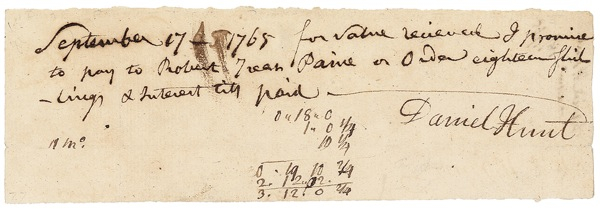 September 17 - 1765 for value recieved I promise
to pay to Robert Treat Paine or Order eighteen Shil
-lings & Interest till paid
Daniel Hunt
0" 18" 0
1" 0 3/4
10 3/4
0. 19 10 3/4
2. 12. 02.
3. 12. 0 3/4